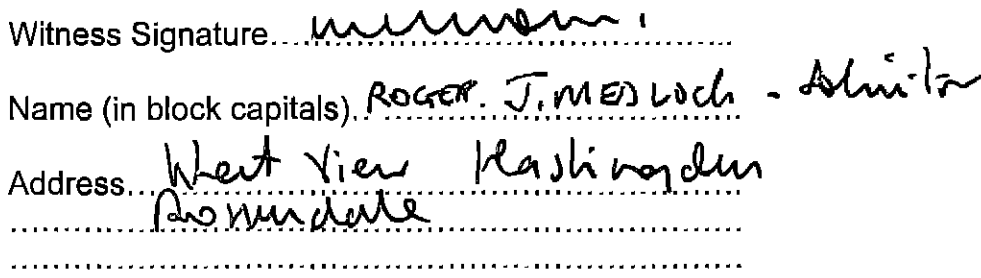 Witness Signature
Name (in block capitals). ROGER. J. MEDLOCK - Solicitor
Address West View Haslingden
Rossendale